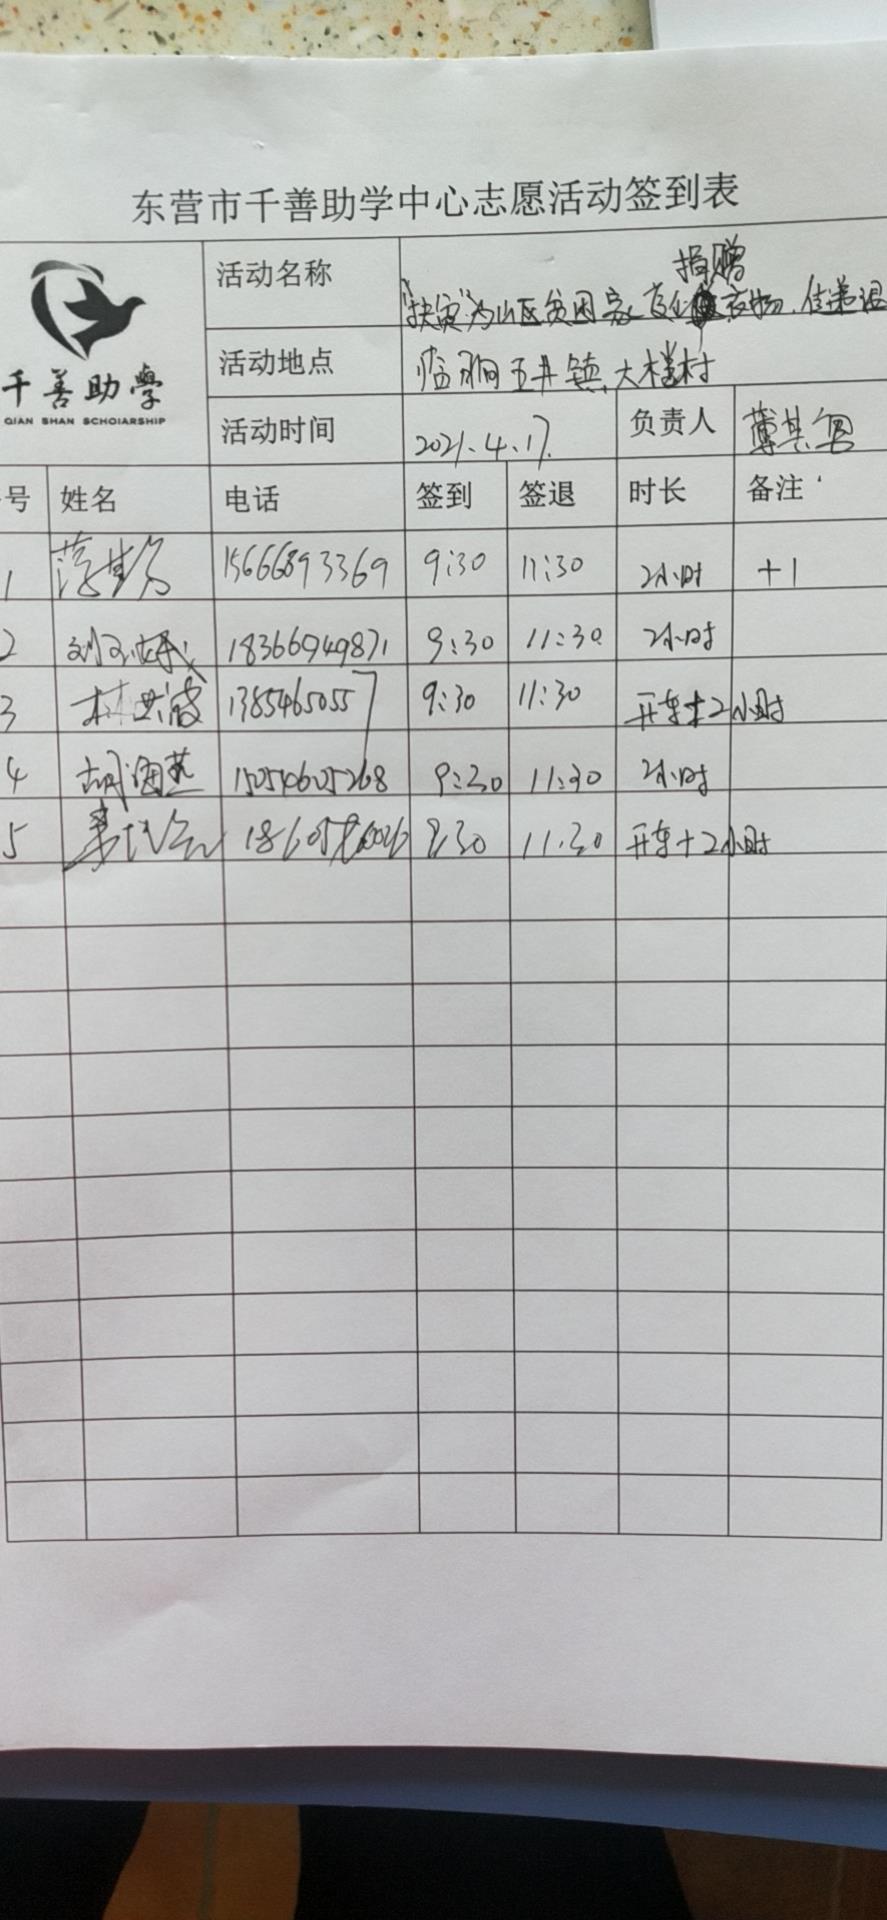 东营市千善助学中心志愿活动签到表
千善助學
QIAN SHAN SCHOIARSHIP
活动名称
捐赠
"扶贫"为山区贫困家庭 衣物、传递温
活动地点 临朐五井镇、大楼村
活动时间 2021.4.17. 负责人 薄其
号 姓名 电话 签到 签退 时长 备注
1 15666893369 9:30 11:30 2小时 +1
2 18366949871 9:30 11:30 2小时
3 林 波 13854650557 9:30 11:30 开车+2小时
4 胡海燕 15054605268 9:30 11:30 2小时
5 9:30 11:30 开车+2小时